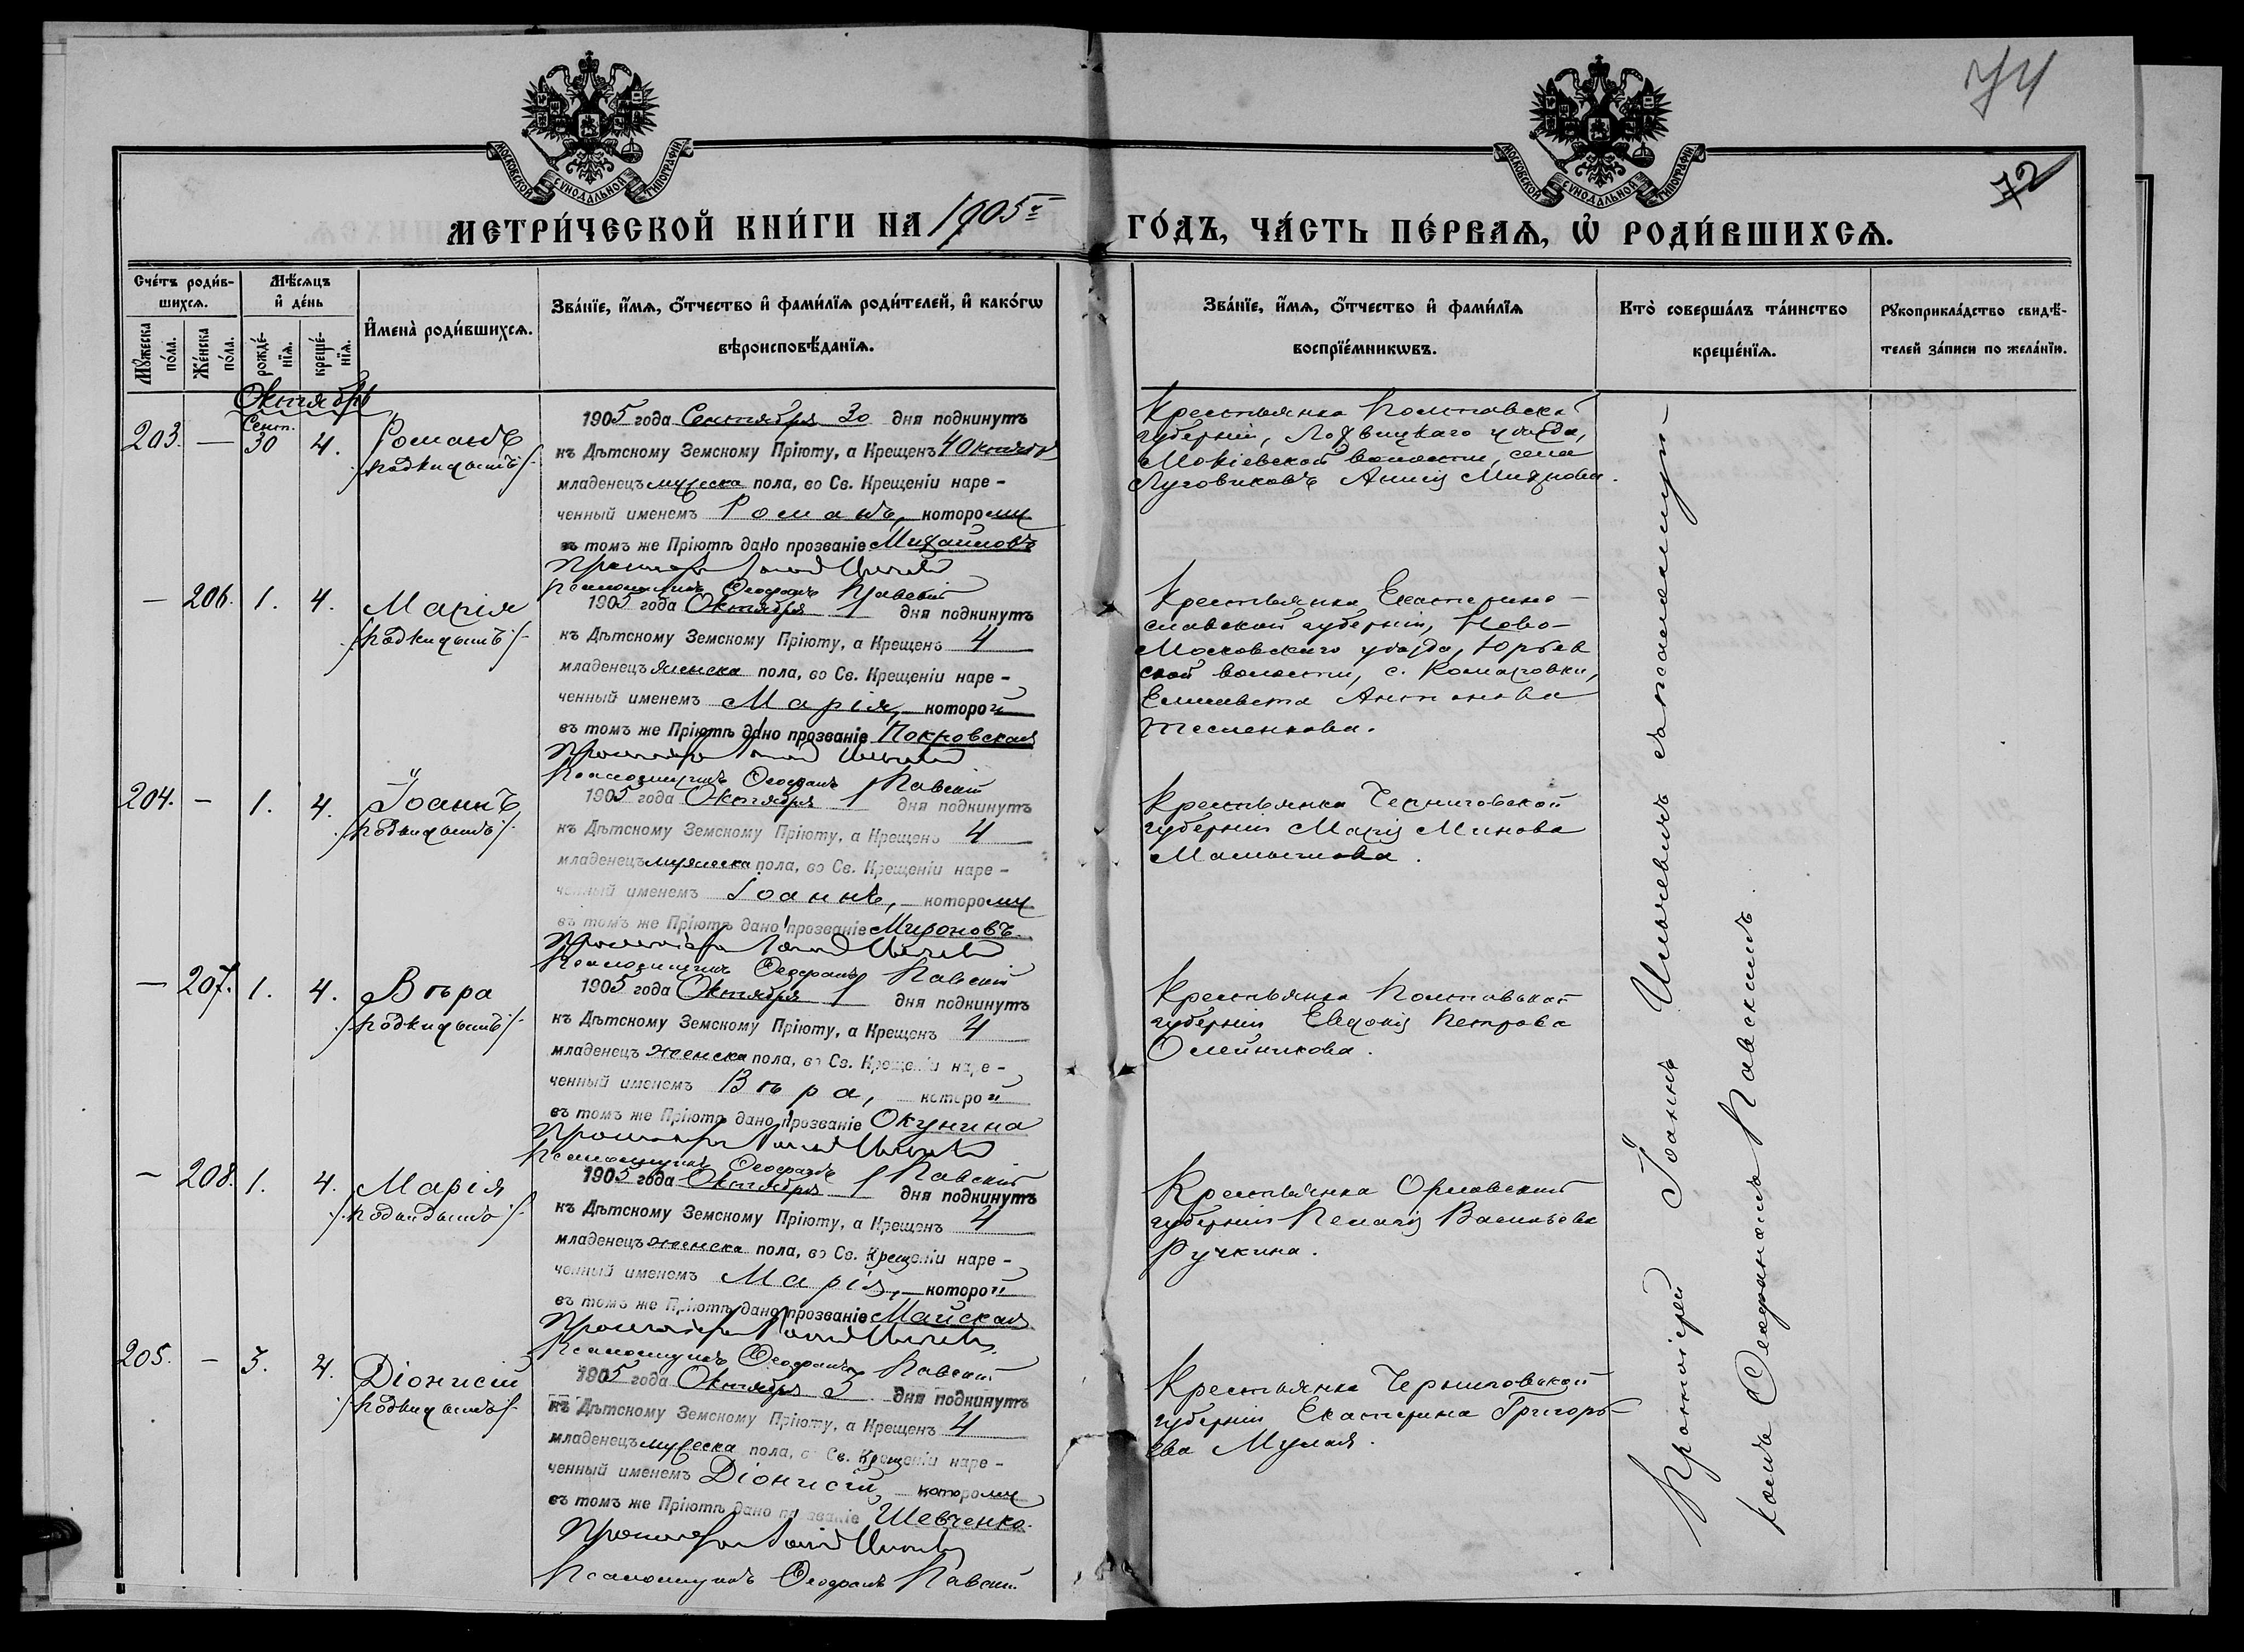 74
72
МОСКОВСКОЙ СѴНОДАЛЬНОЙ ТИПОГРАФІИ
МОСКОВСКОЙ СѴНОДАЛЬНОЙ ТИПОГРАФІИ
МЕТРИ́ЧЕСКОЙ КНИ́ГИ НА 1905й
ГО́ДЪ, ЧА́СТЬ ПЕ́РВАѦ, Ѡ҆ РОДИ́ВШИХСѦ.
Сче́тъ роди́в-
шихсѧ.
Мꙋ́жеска по́ла.
Же́нска по́ла.
Мѣ́сѧцъ
и҆ де́нь
рожде́-нїѧ.
креще́-нїѧ.
И҆мена̀ роди́вшихсѧ.
Зва́нїе, и҆́мѧ, ѻ҆́тчество и҆ фами́лїѧ роди́телей, и҆ како́гѡ
вѣроисповѣ́данїѧ.
Зва́нїе, и҆́мѧ, ѻ҆́тчество и҆ фами́лїѧ
воспрїе́мникѡвъ.
Кто̀ соверша́лъ та́инство
креще́нїѧ.
Рꙋкоприкла́дство свидѣ́-
телей за́писи по жела́нїю.
Октябрь
203. — Сент. 30 4. Романъ
/подкидышъ/
1905 года Сентября 30 дня подкинутъ
къ Дѣтскому Земскому Пріюту, а Крещенъ 4 Октября
младенецъ мужеска пола, во Св. Крещеніи наре-
ченный именемъ Романъ, которому
въ томъ же Пріютѣ дано прозваніе Михайловъ
Псаломщикъ Ѳеофанъ Павскій
Крестьянка Полтавской
губерніи, Лохвицкаго уѣзда,
волости, села
Луговиковъ
— 206. 1. 4. Марія
/подкидышъ/
1905 года Октября 1 дня подкинутъ
къ Дѣтскому Земскому Пріюту, а Крещенъ 4
младенецъ женска пола, во Св. Крещеніи наре-
ченный именемъ Марія, которой
въ томъ же Пріютѣ дано прозваніе Покровская
Псаломщикъ Ѳеофанъ Павскій
Крестьянка Екатерино-
славской губерніи, Ново-
Московскаго уѣзда, Юрьев
ской волости, с. Комаровки,
Елисавета Антонова
Тесленкова.
204. — 1. 4. Іоаннъ
/подкидышъ/
1905 года Октября 1 дня подкинутъ
къ Дѣтскому Земскому Пріюту, а Крещенъ 4
младенецъ мужеска пола, во Св. Крещеніи наре-
ченный именемъ Іоаннъ, которому
въ томъ же Пріютѣ дано прозваніе Мироновъ
Псаломщикъ Ѳеофанъ Павскій
Крестьянка Черниговской
губерніи Марія Минова
— 207. 1. 4. Вѣра
/подкидышъ/
1905 года Октября 1 дня подкинутъ
къ Дѣтскому Земскому Пріюту, а Крещенъ 4
младенецъ женска пола, во Св. Крещеніи наре-
ченный именемъ Вѣра, которой
въ томъ же Пріютѣ дано прозваніе Окунина
Псаломщикъ Ѳеофанъ Павскій
Крестьянка Полтавской
губерніи Евдокія Петрова
Олейникова.
— 208. 1. 4. Марія
/подкидышъ/
1905 года Октября 1 дня подкинутъ
къ Дѣтскому Земскому Пріюту, а Крещенъ 4
младенецъ женска пола, во Св. Крещеніи наре-
ченный именемъ Марія, которой
въ томъ же Пріютѣ дано прозваніе Майская
Псаломщикъ Ѳеофанъ Павскій
Крестьянка Орловской
губерніи Пелагія Васильева
Ручкина.
205. — 3. 4. Діонисій
/подкидышъ/
1905 года Октября 3 дня подкинутъ
къ Дѣтскому Земскому Пріюту, а Крещенъ 4
младенецъ мужеска пола, во Св. Крещеніи наре-
ченный именемъ Діонисій, которому
въ томъ же Пріютѣ дано прозваніе Шевченко
Псаломщикъ Ѳеофанъ Павскій
Крестьянка Черниговской
губерніи Екатерина Григорь-
ева
Протоіерей Іоаннъ съ псаломщи-
комъ Ѳеофаномъ Павскимъ.